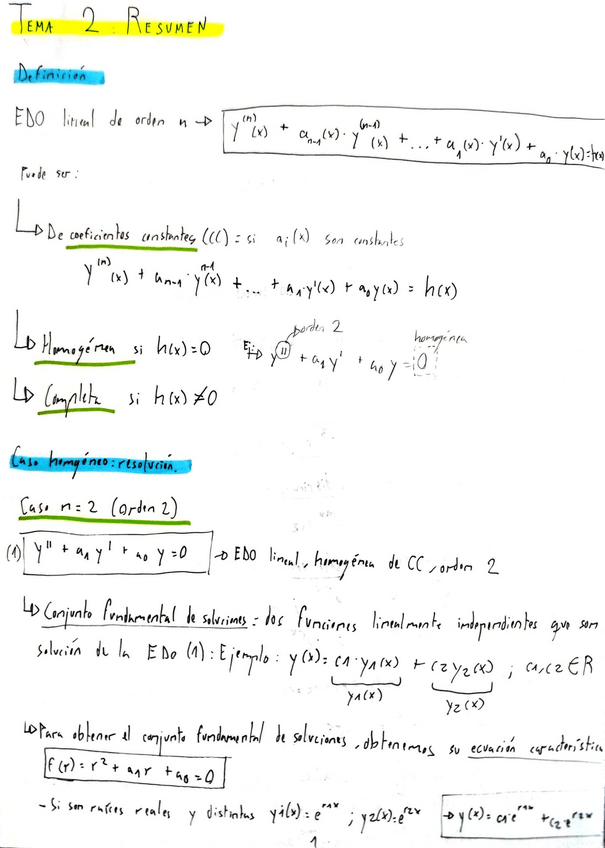 TEMA 2: RESUMEN
Definición
EDO lineal de orden n → y⁽ⁿ⁾(x) + aₙ₋₁(x)·y⁽ⁿ⁻¹⁾(x) + ... + a₁(x)·y'(x) + a₀·y(x)=h(x)
Puede ser:
↳ De coeficientes constantes (CC) = si aᵢ(x) son constantes
y⁽ⁿ⁾(x) + aₙ₋₁·yⁿ⁻¹(x) + ... + a₁·y'(x) + a₀y(x) = h(x)
↳ Homogénea si h(x)=0
Ej:→ y'' + a₁y' + a₀y = 0
orden 2
homogénea
↳ Completa si h(x)≠0
Caso homogéneo: resolución.
Caso n=2 (Orden 2)
(1) y'' + a₁y' + a₀y = 0 → EDO lineal, homogénea de CC, orden 2
↳ Conjunto fundamental de soluciones = dos funciones linealmente independientes que son
solución de la EDO (1): Ejemplo: y(x)= c1·y1(x) + c2y2(x) ; c1,c2∈R
y1(x) y2(x)
↳ Para obtener el conjunto fundamental de soluciones, obtenemos su ecuación característica
f(r)=r²+a₁r+a₀=0
- Si son raíces reales y distintas y1(x)=e^r1x ; y2(x)=e^r2x → y(x)=c1·e^r1x + c2·e^r2x
1